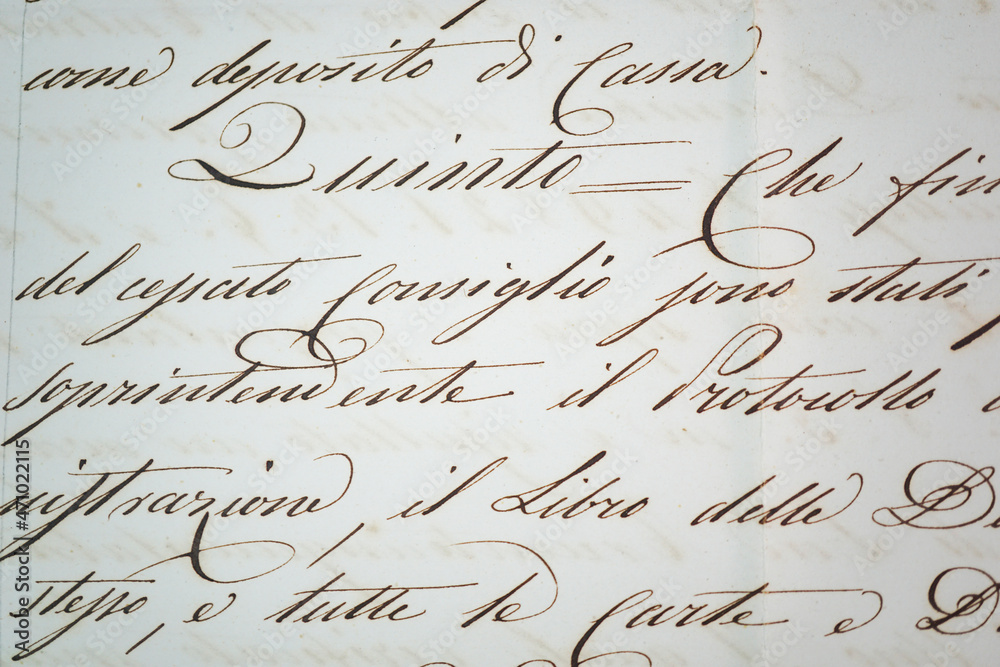 come deposito di Cassa.
Quinto = Che fin
del cessato Consiglio sono stati
soprintendente il Protocollo
nistrazione, il Libro delle De
stesso, e tutte le Carte e D
Adobe Stock | #471022115